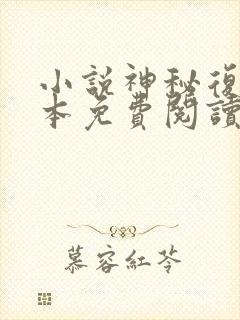 小說神秘復
本免費閱讀
慕容紅苓